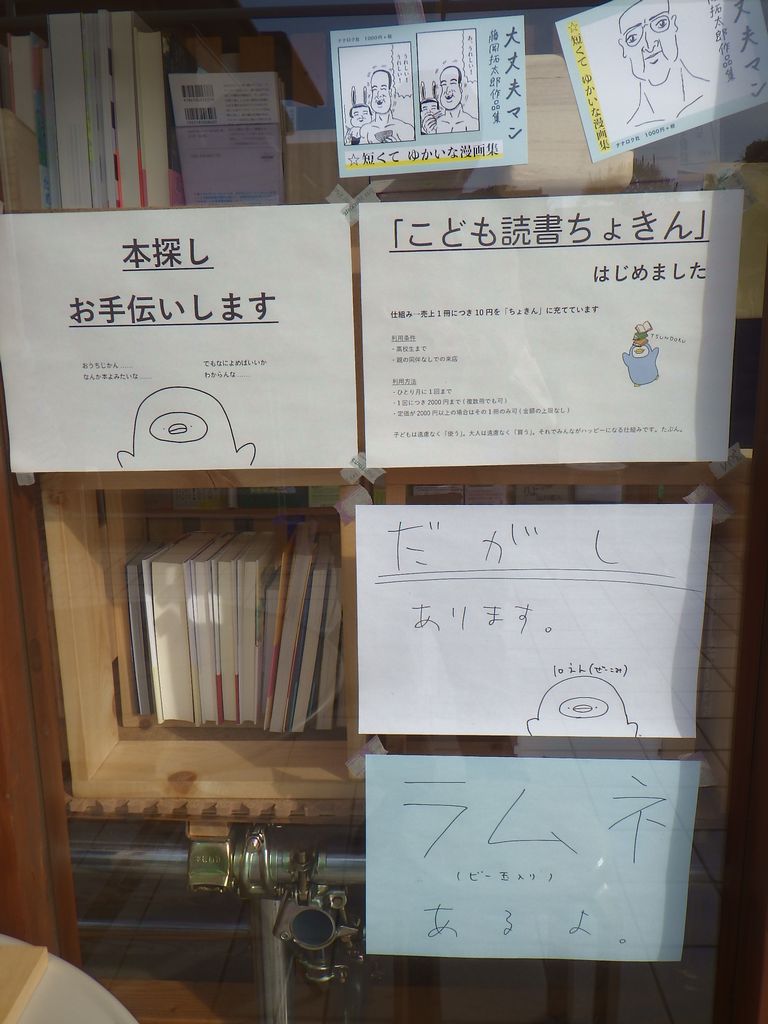 大丈夫マン
藤岡拓太郎作品集
ナナロク社 1000円+税
あ、うれしい!
うれしい!
☆短くて ゆかいな漫画集
大丈夫マン
拓太郎作品集
☆短くて ゆかいな漫画集
ナナロク社 1000円+税
本探し
お手伝いします
おうちじかん……
なんか本よみたいな……
でもなによめばいいか
わからんな……
「こども読書ちょきん」
はじめました
仕組み→売上1冊につき10円を「ちょきん」に充てています
TSUNDOKU
利用条件
・高校生まで
・親の同伴なしでの来店
利用方法
・ひとり月に1回まで
・1回につき2000円まで(複数冊でも可)
・定価が2000円以上の場合はその1冊のみ可(金額の上限なし)
子どもは遠慮なく「使う」。大人は遠慮なく「買う」。それでみんながハッピーになる仕組みです。たぶん。
だがし
あります。
10えん(ぜーこみ)
ラムネ
(ビー玉入り)
あるよ。